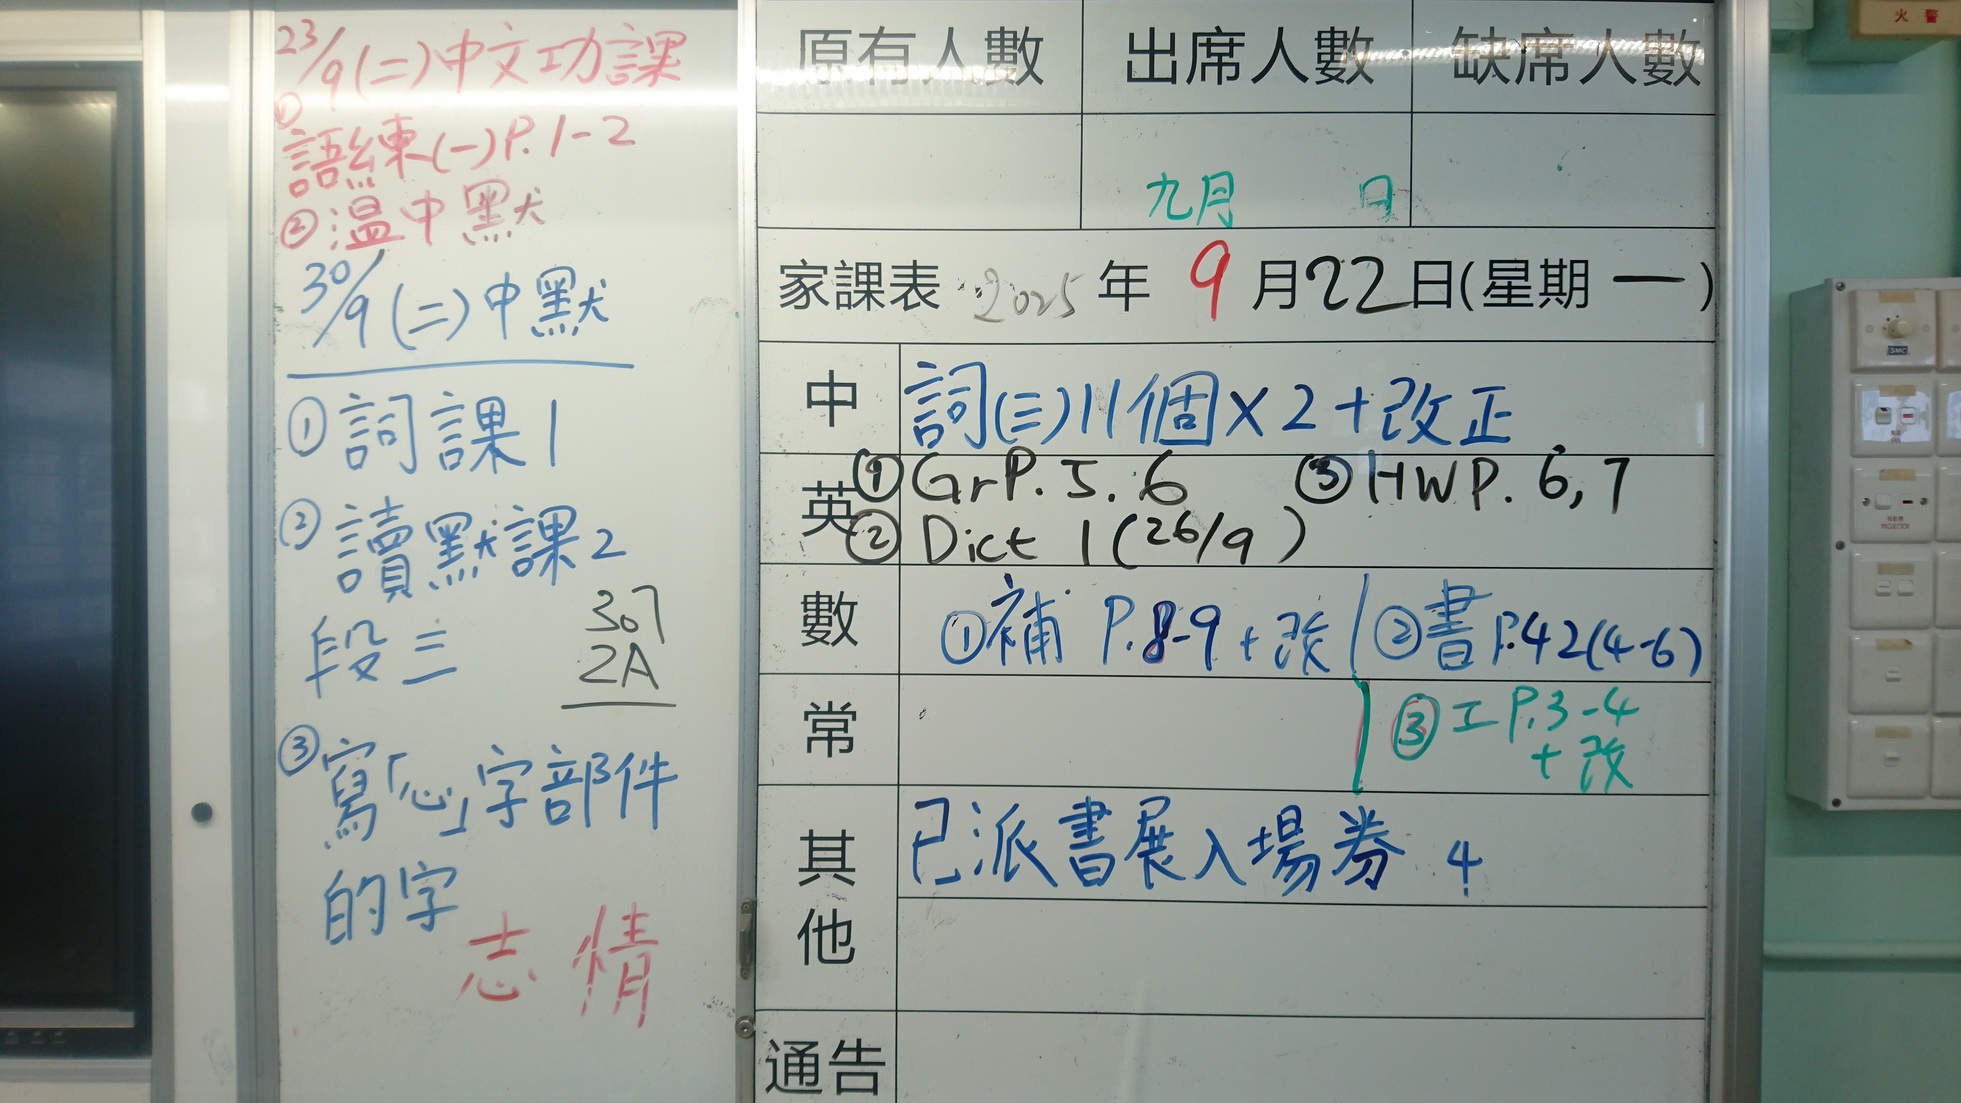 23/9(二)中文功課
①
語練(一)P.1-2
②温中默
30/9(二)中默
①詞課1
②讀默課2
段三
307
2A
③寫「心」字部件
的字
志 情
原有人數 出席人數 缺席人數
九月 日
家課表 2025年 9月22日(星期一)
中 詞(三)11個×2+改正
英 ①GrP.5.6 ③HWP.6,7
②Dict 1(26/9)
數 ①補 P.8-9+改 ②書P.42(4-6)
常 ③工P.3-4
+改
其他 已派書展入場券 4
通告
火警
SMC
PROJECTOR